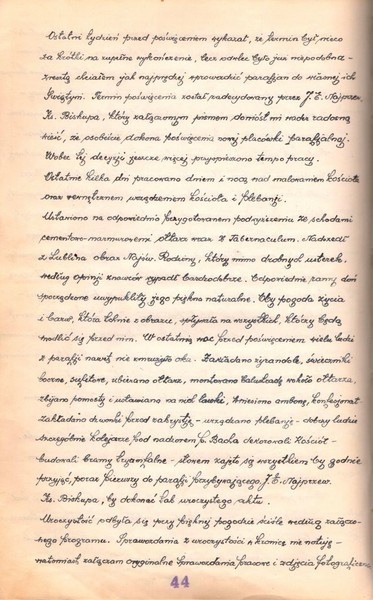 Ostatni tydzień przed poświęceniem wykazał, że termin był nieco
za krótki na zupełne wykończenie, lecz odwlec było już niepodobna -
zresztą chciałem jak najprędzej wprowadzić parafjan do własnej ich
Świątyni. Termin poświęcenia został zadecydowany przez J. E. Najprzew.
Ks. Biskupa, który załączonym pismem doniósł mi nader radosną
wieść, że osobiście dokona poświęcenia nowej placówki parafjalnej.
Wobec tej decyzji jeszcze więcej przyspieszono tempo pracy.
Ostatnie kilka dni pracowano dniem i nocą nad malowaniem kościoła
oraz wewnętrznem urządzeniem kościoła i plebanji.
Ustawiono na odpowiednio przygotowanem podwyższeniu ze schodami
cementowo-marmurowemi ołtarz wraz z Tabernaculum. Nadszedł
z Lublina obraz Najśw. Rodziny, który mimo drobnych usterek,
według opinji znawców wypadł bardzo dobrze. Odpowiednie ramy doń
sporządzone uwypukliły jego piękno naturalne. Oby pogoda życia
i barw, która tchnie z obrazu, spływała na wszystkich, którzy będą
modlić się przed nim. W ostatnią noc przed poświęceniem wielu ludzi
z parafji nawet nie zmrużyło oka. Zakładano żyrandole, świeczniki
boczne, sufitowe, ubierano ołtarz, montowano balustradę wokoło ołtarza,
zbijano pomosty i ustawiano na nich ławki, wniesiono ambonę, konfesjonał
zakładano dzwonki przed zakrystję - urządzano plebanję - dobrzy ludzie
szczególnie kolejarze pod nadzorem p. Bacha dekorowali kościół -
budowali bramy tryumfalne - słowem zajęto się wszystkiem, by godnie
przyjąć, poraz pierwszy do parafji przybywającego, J. E. Najprzew.
Ks. Biskupa, by dokonać tak uroczystego aktu.
Uroczystość odbyła się przy pięknej pogodzie ściśle według załączo-
nego programu. Sprawozdania z uroczystości w kronice nie notuję -
natomiast załączam oryginalne sprawozdania prasowe i zdjęcia fotograficzne
44